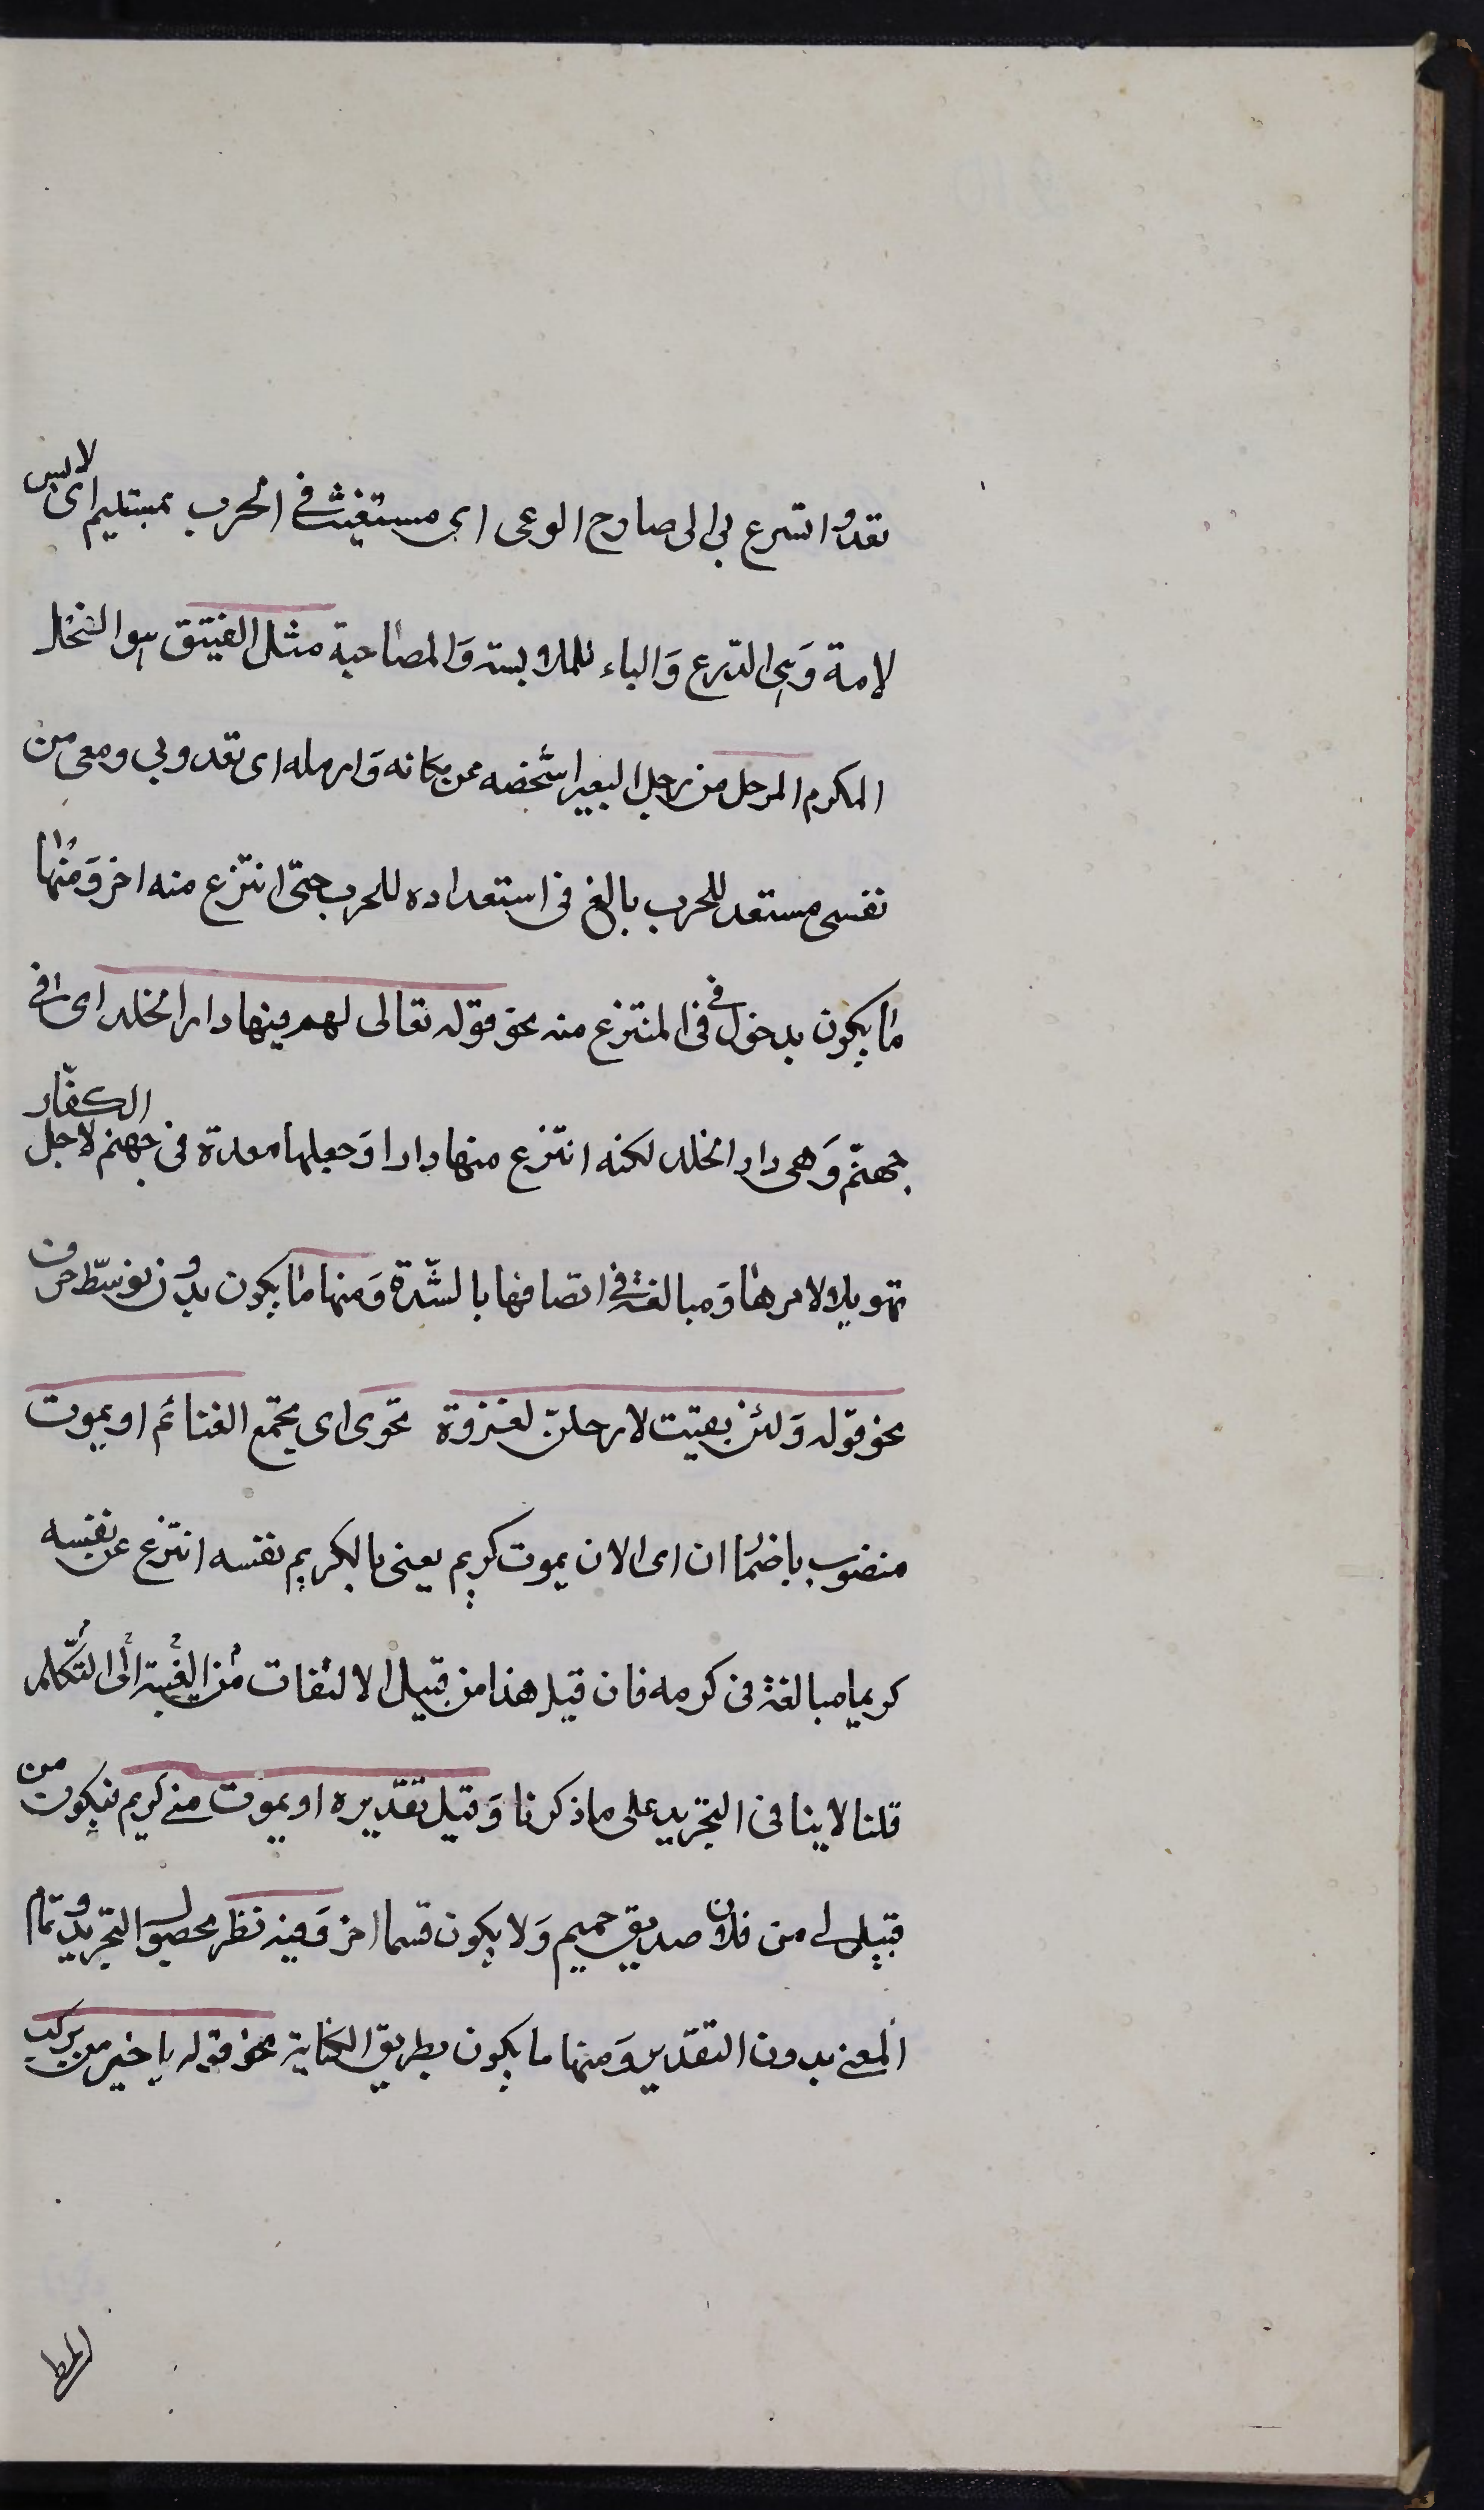 تعدوا تسرع بى الى صارح الوعى اى مستغيث فى الحرب بمستليم اى لابس
لامة وَهى الدّرع وَالباء للملابسته وَالمصاحبة مثل الفيتق هو الفحل
المكرم المرحل من رحل البعير اشخصه عن مكانه وَارسله اى تعدو بى ومعى من
نفسى مستعد للحرب بالغ فى استعداده للحرب حتى انتزع منه اخر وَمنها
ما يكون بدخول فى فى المنتزع منه نحو قوله تعالى لهم فيها دار الخلد اى فى
جهنّم وَهى دار الخلد لكنه انتزع منها دارا وَجعلها معدة فى جهنم لاجل الكفّار
تهويلا لامرها وَمبالغة فى اتصافها بالشّدة وَمنها ما يكون بدون توسّط حرف
نحو قوله وَلئن بقيت لارحلنّ لغزوة تحوى اى يجتمع الغنائم او يموت
منصوب باضمار ان اى الا ان يموت كريم يعنى بالكريم نفسه انتزع عن نفسه
كريما مبالغة فى كرمه فان قيل هذا من قبيل الالتفات من الغيبة الى التّكلم
قلنا لا ينافى التجريد على ما ذكرنا وَقيل تقديره او يموت منى كريم فيكون من
قبيل لى من فلان صديق حميم وَلا يكون قسما اخر وَفيه نظر لحصول التجريد وتمام
المعنى بدون التقدير وَمنها ما يكون بطريق الكناية نحو قوله يا خير من يركب
المطى